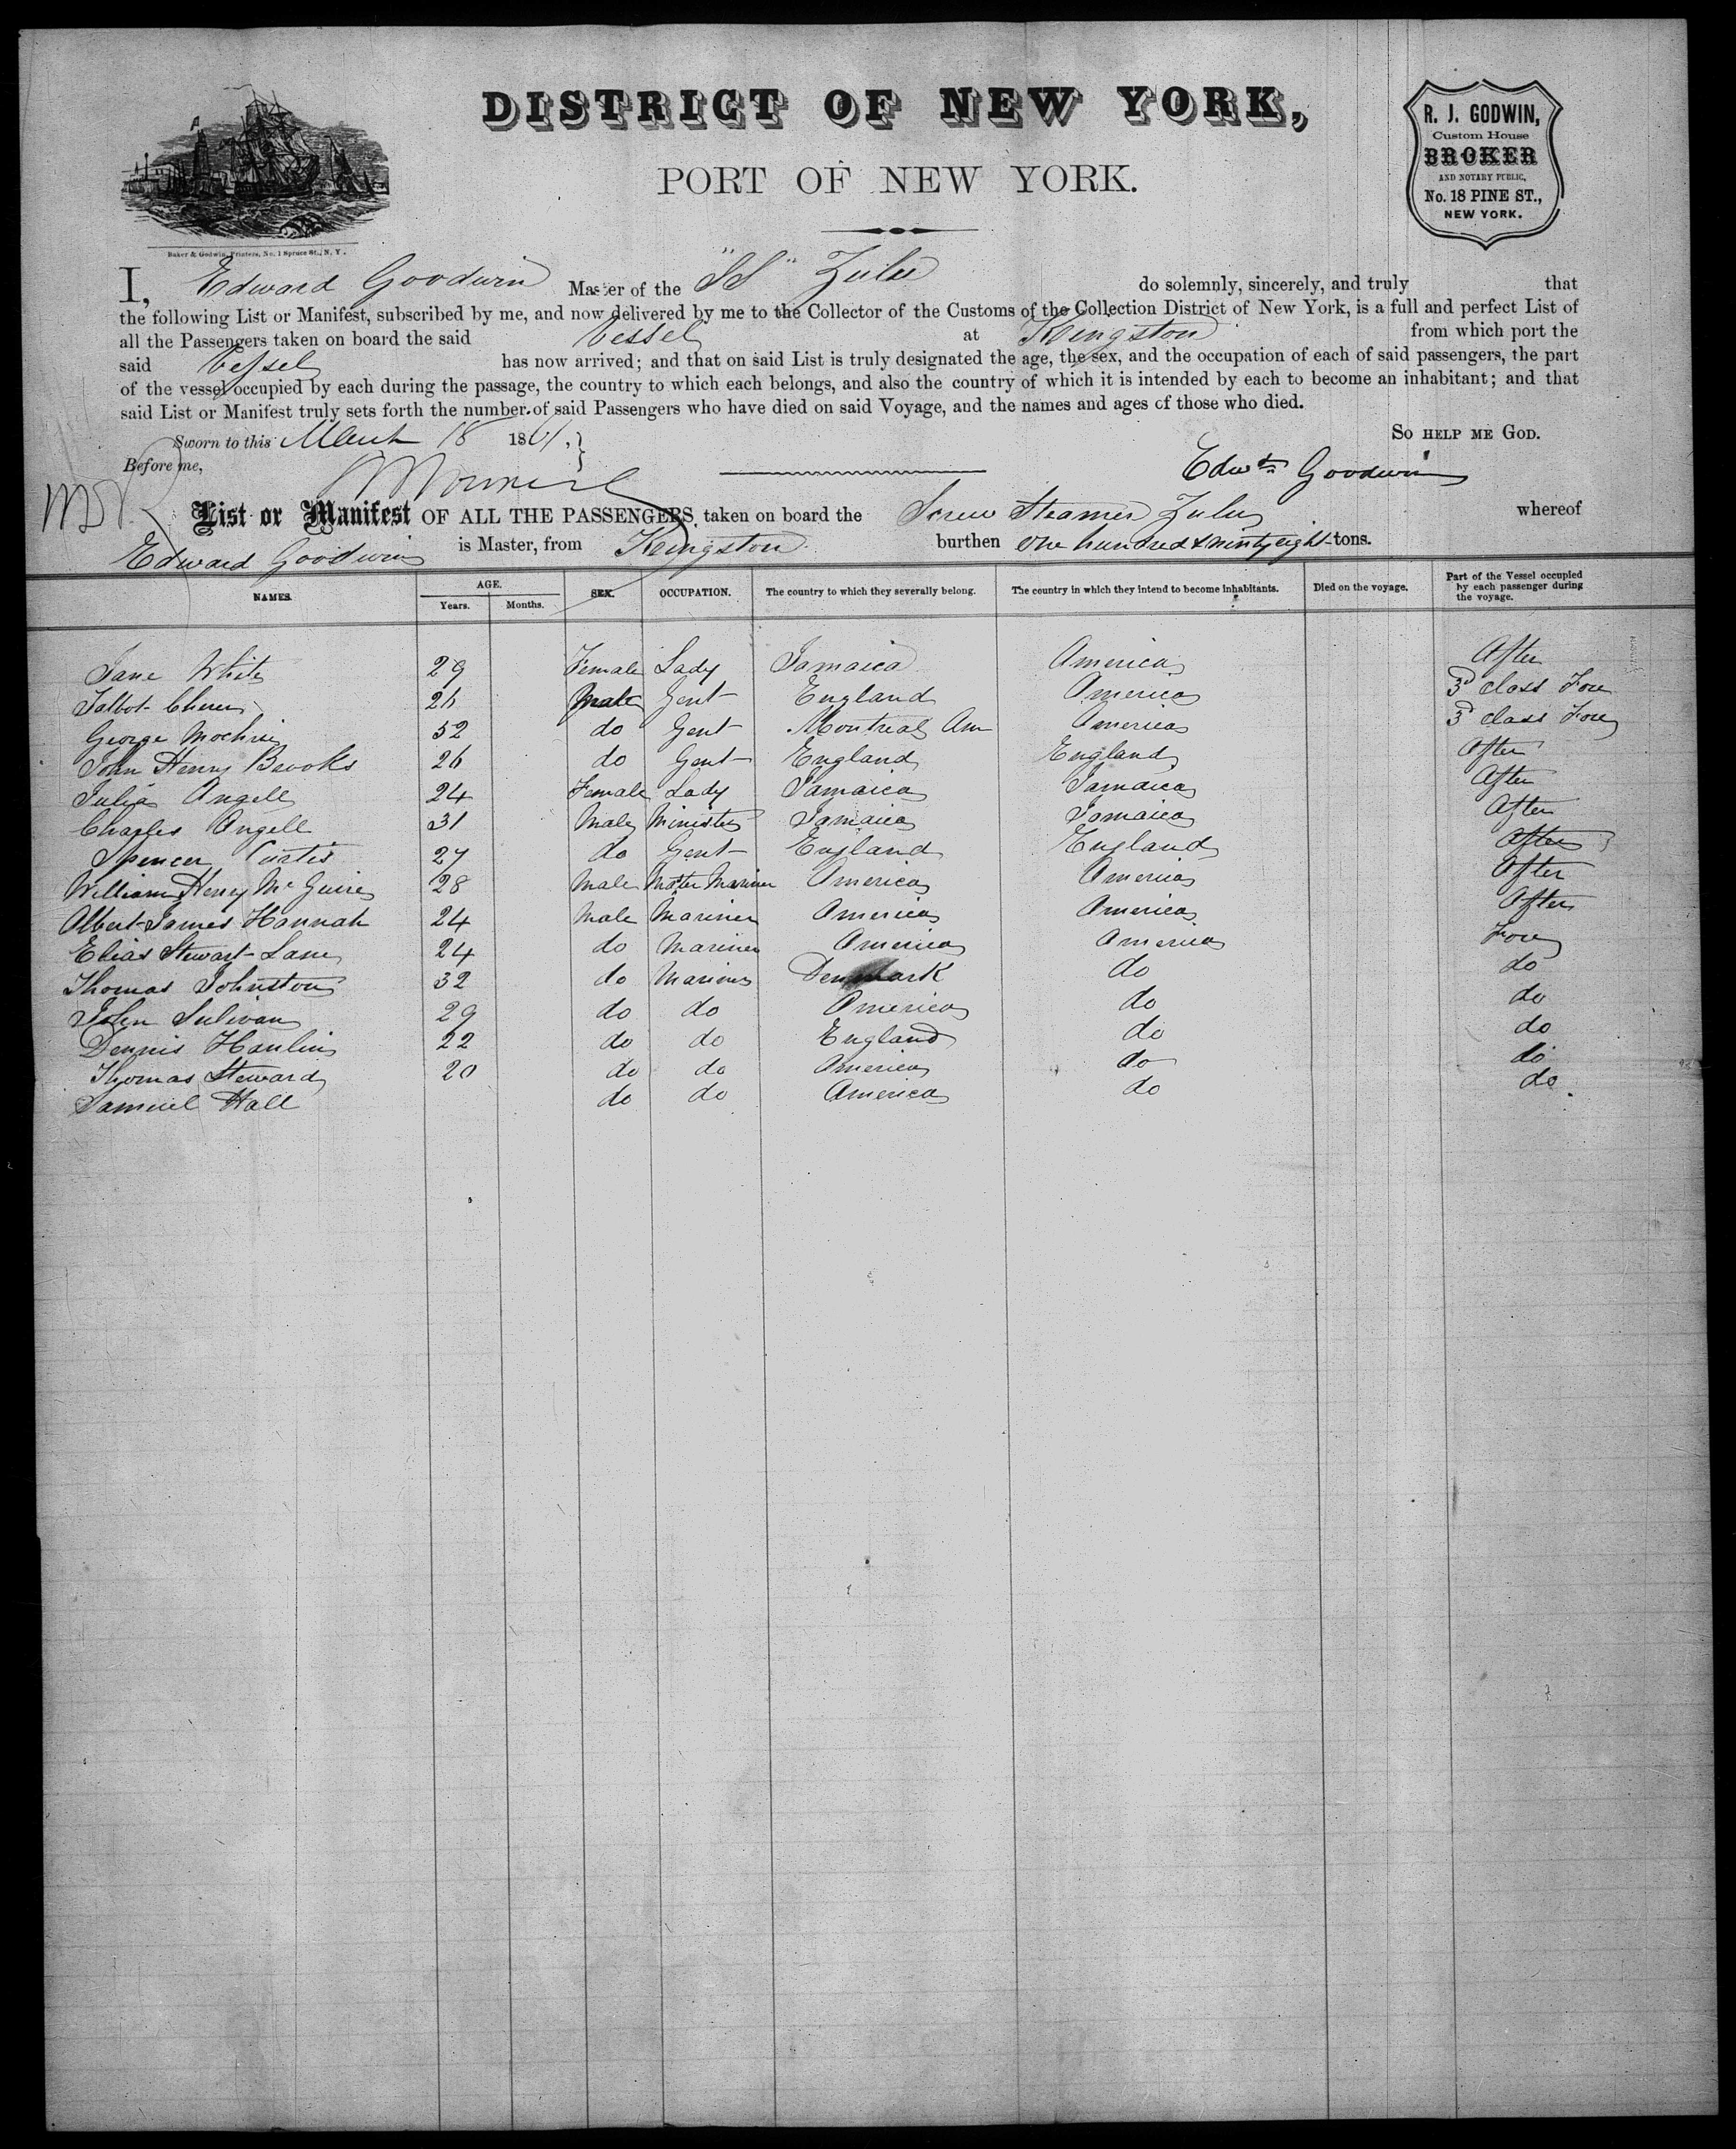 DISTRICT OF NEW YORK,
PORT OF NEW YORK.
R. J. GODWIN,
Custom House
BROKER
AND NOTARY PUBLIC,
No. 18 PINE ST.,
NEW YORK.
Baker & Godwin, Printers, No. 1 Spruce St., N. Y.
I, Edward Goodwin Master of the "SS" Zulu do solemnly, sincerely, and truly that
the following List or Manifest, subscribed by me, and now delivered by me to the Collector of the Customs of the Collection District of New York, is a full and perfect List of
all the Passengers taken on board the said Vessel at Kingston from which port the
said Vessel has now arrived; and that on said List is truly designated the age, the sex, and the occupation of each of said passengers, the part
of the vessel occupied by each during the passage, the country to which each belongs, and also the country of which it is intended by each to become an inhabitant; and that
said List or Manifest truly sets forth the number of said Passengers who have died on said Voyage, and the names and ages of those who died.
Sworn to this March 18 1861, SO HELP ME GOD.
Before me, Edwd Goodwin
List or Manifest OF ALL THE PASSENGERS taken on board the Screw Steamer Zulu whereof
Edward Goodwin is Master, from Kingston burthen one hundred & ninty eight tons.
NAMES. AGE. Years. Months. SEX. OCCUPATION. The country to which they severally belong. The country in which they intend to become inhabitants. Died on the voyage. Part of the Vessel occupied by each passenger during the voyage.
Jane White 29 Female Lady Jamaica America After
Talbot 26 Male Gent England America 3d class Fore
George Mochrie 52 do Gent Montreal Am America 3d class Fore
John Henry Brooks 26 do Gent England England After
Julia Angell 24 Female Lady Jamaica Jamaica After
Charles Angell 31 Male Minister Jamaica Jamaica After
Spencer Curtis 27 do Gent England England After
William Henry McGuire 28 Male Master Mariner America America After
Albert James Hannah 24 Male Mariner America America After
Elias Stewart Lane 24 do Mariner America America Fore
Thomas Johnston 32 do Mariner Denmark do do
John Sulivan 29 do do America do do
Dennis Hanlin 22 do do England do do
Thomas Steward 20 do do America do do
Samuel Hall do do America do do